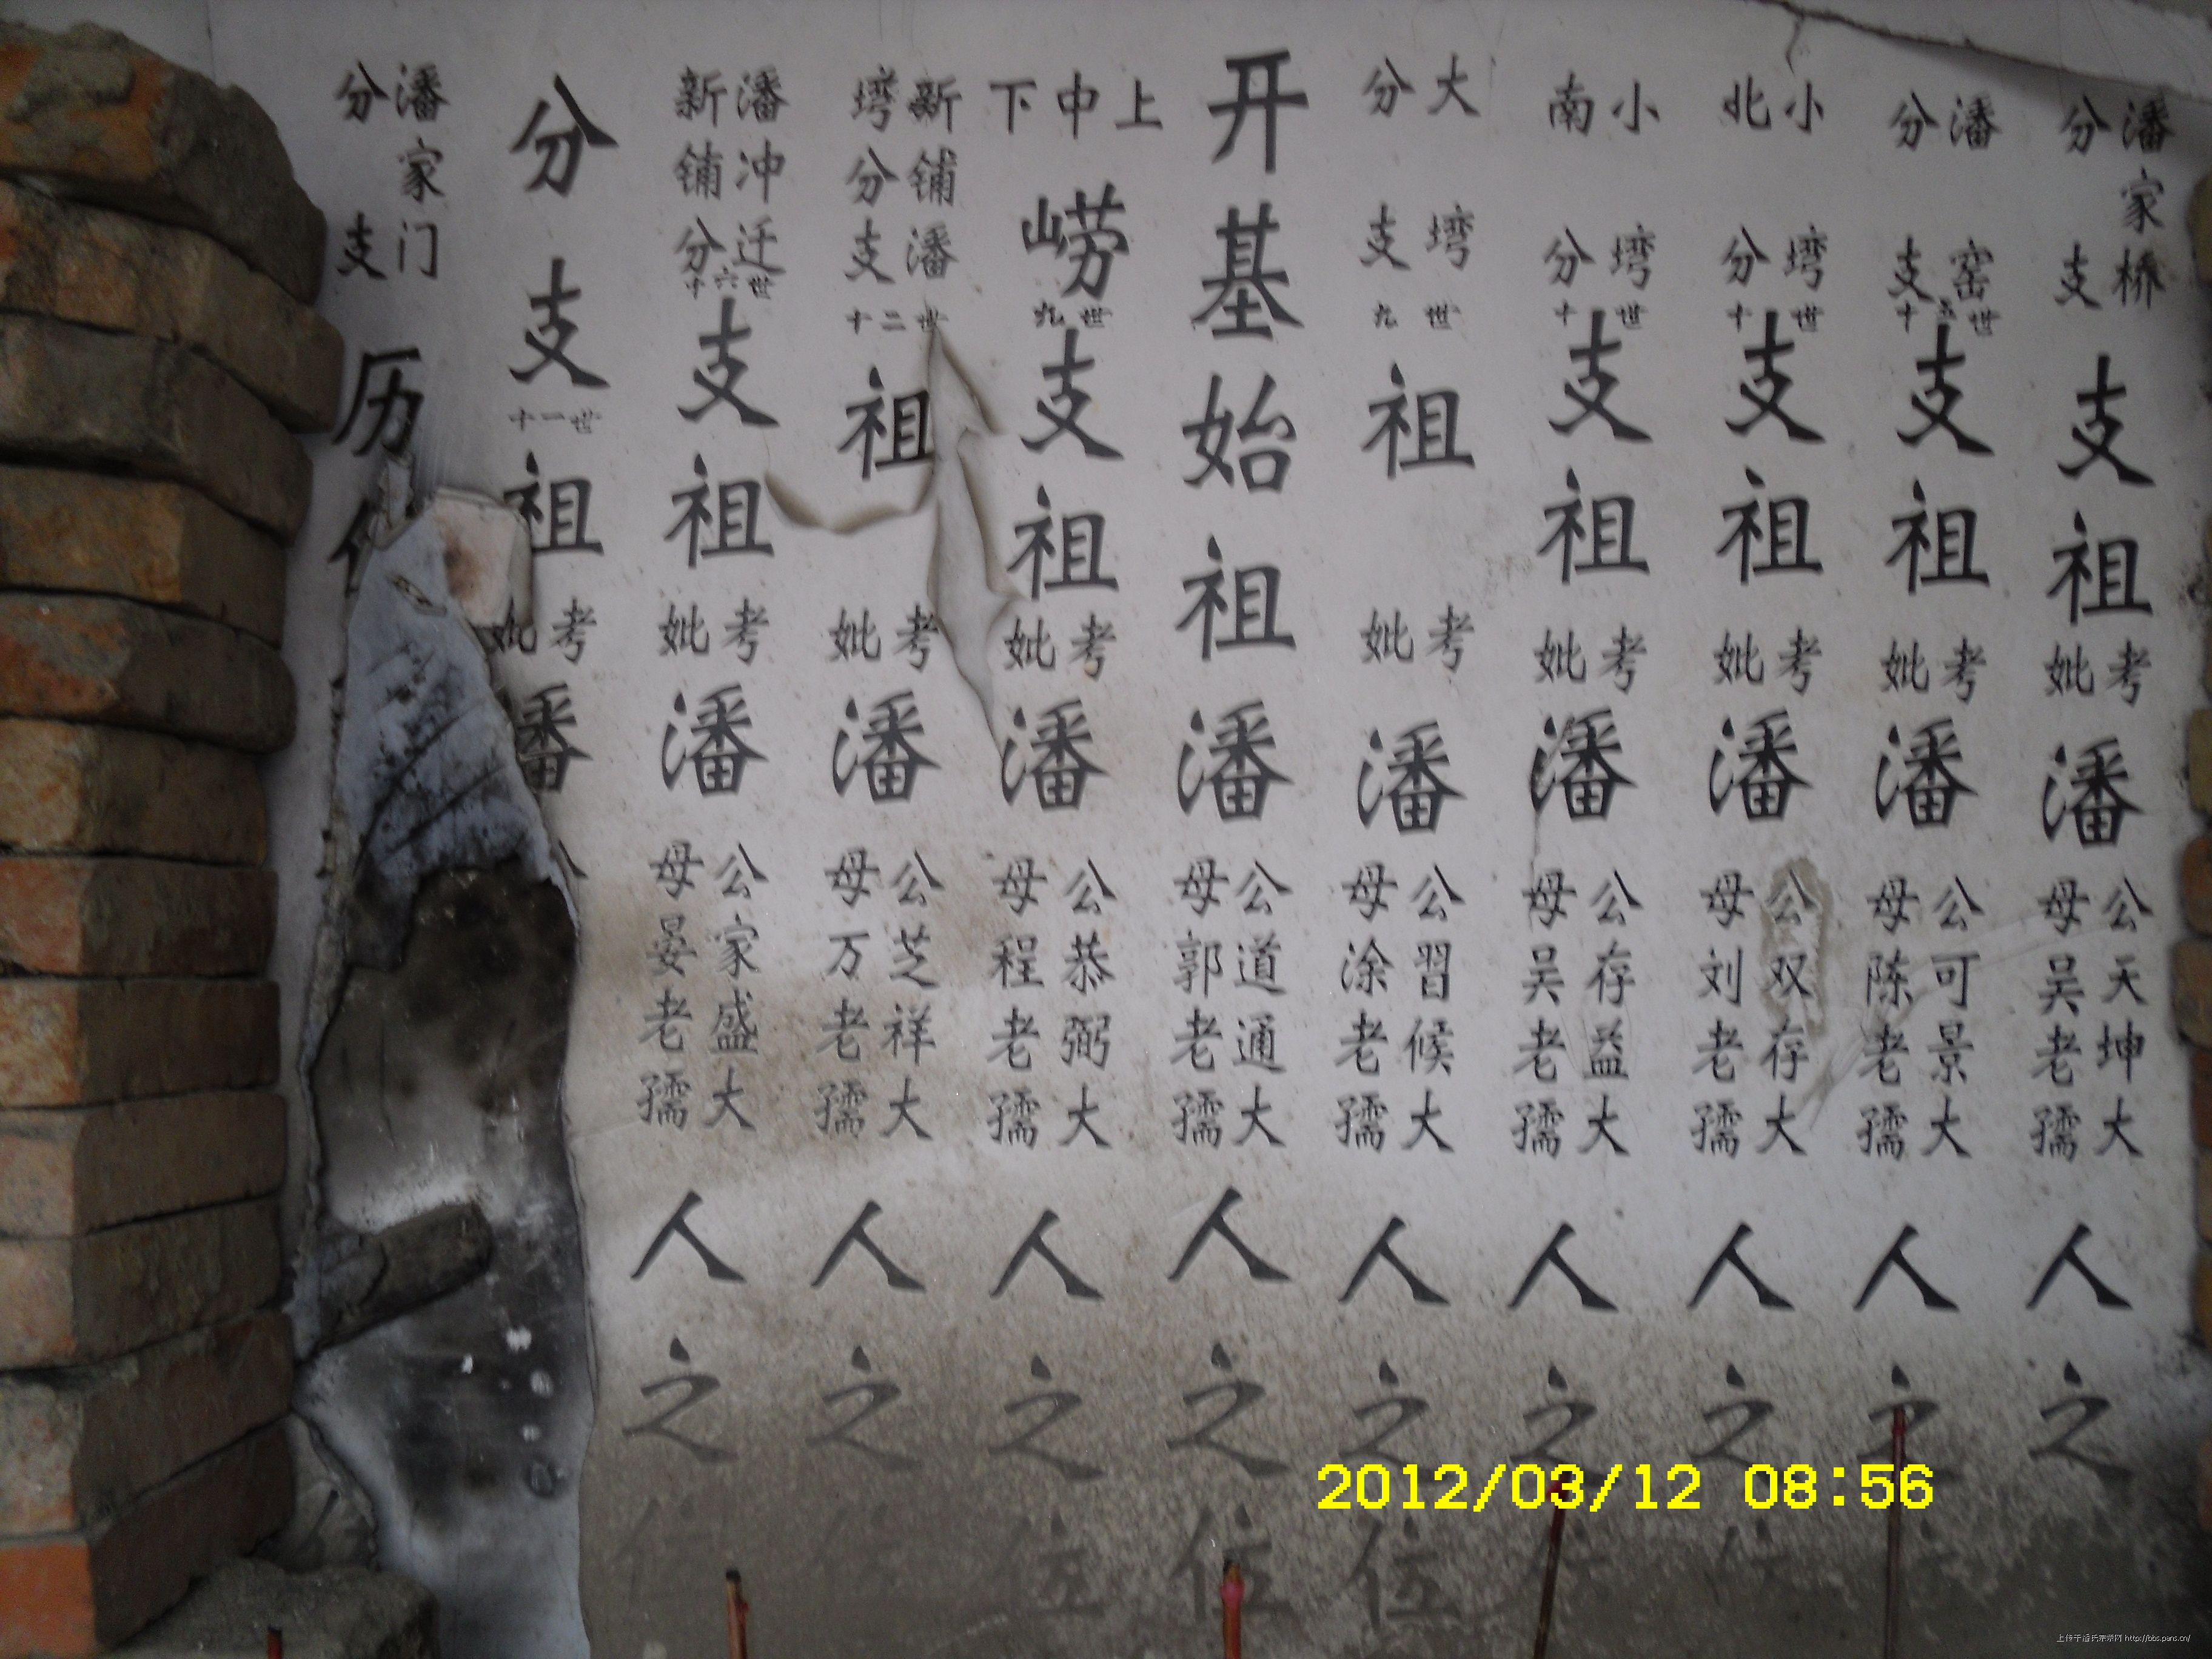 潘家桥 分支 支祖 考妣 潘 公天坤大 母吴老孺 人之
潘窑 分支 十五世 支祖 考妣 潘 公可景大 母陈老孺 人之
小塆 北分 十世 支祖 考妣 潘 公双存大 母刘老孺 人之
小塆 南分 十世 支祖 考妣 潘 公存益大 母吴老孺 人之
大塆 分支 九世 祖 考妣 潘 公習候大 母涂老孺 人之位
开基始祖 潘 公道通大 母郭老孺 人之位
上中下 崂 九世 支祖 考妣 潘 公恭弼大 母程老孺 人之位
新铺潘 塆分支 十二世 祖 考妣 潘 公芝祥大 母万老孺 人之
潘冲迁 新铺分 十六世 支祖 考妣 潘 公家盛大 母晏老孺 人之
分支 十一世 祖 考妣 潘
潘家门 分支 历
2012/03/12 08:56
上传于潘氏宗亲网 http://bbs.pans.cn/